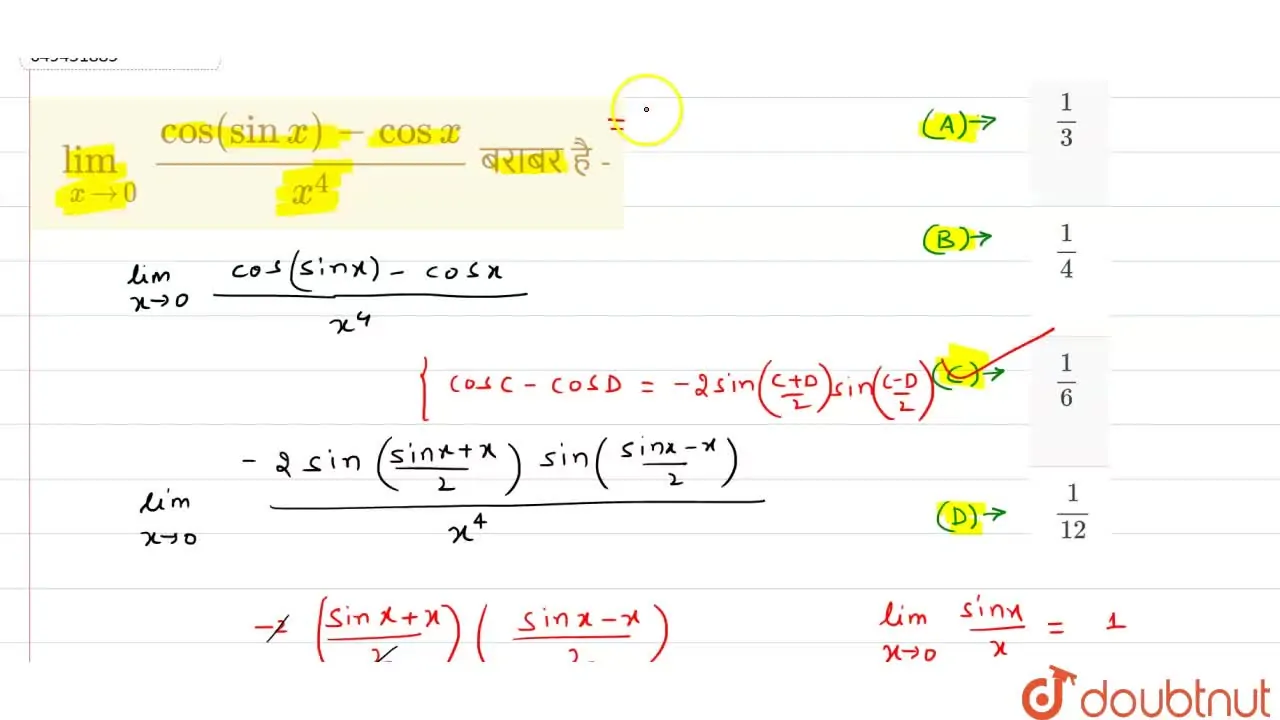 lim x→0 cos(sin x) − cos x / x⁴ बराबर है -
=
(A)→ 1/3
(B)→ 1/4
lim x→0 cos(sinx) - cosx / x⁴
{ cosC - cosD = -2sin(C+D/2) sin(C-D/2)
(C)→ 1/6
lim x→0 -2 sin(sinx+x/2) sin(sinx-x/2) / x⁴
(D)→ 1/12
-2 (sinx+x/2) (sinx-x/2)
lim x→0 sinx/x = 1
doubtnut